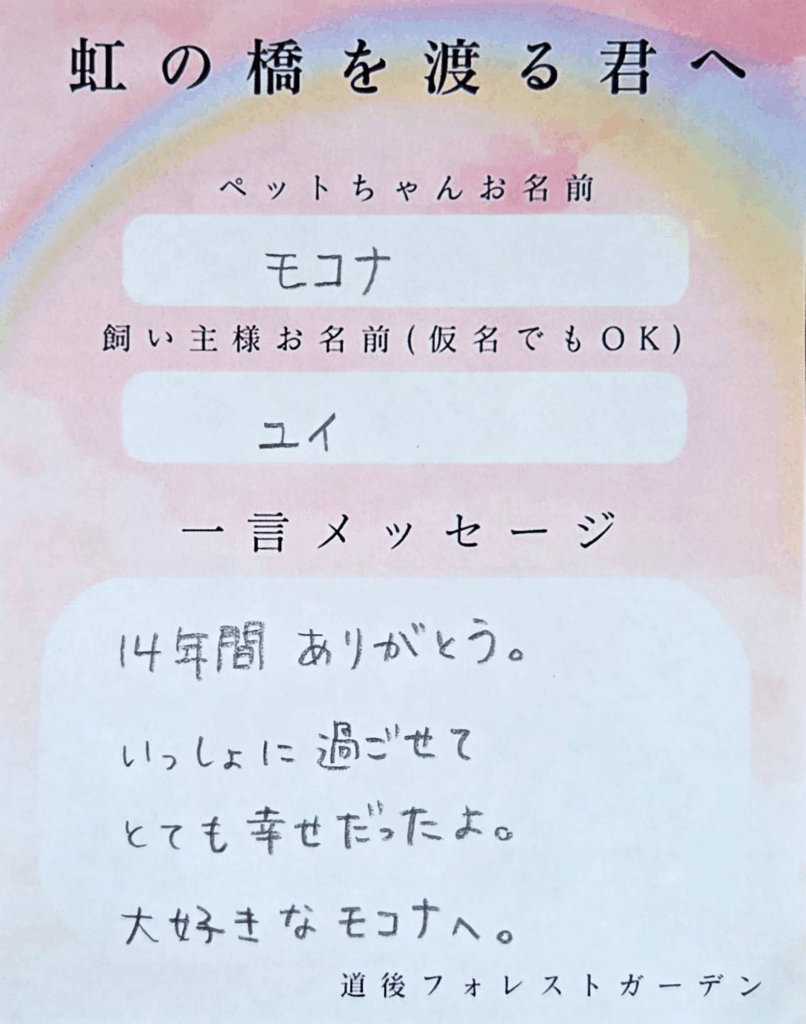 虹の橋を渡る君へ
ペットちゃんお名前
モコナ
飼い主様お名前(仮名でもOK)
ユイ
一言メッセージ
14年間 ありがとう。
いっしょに過ごせて
とても幸せだったよ。
大好きなモコナへ。
道後フォレストガーデン